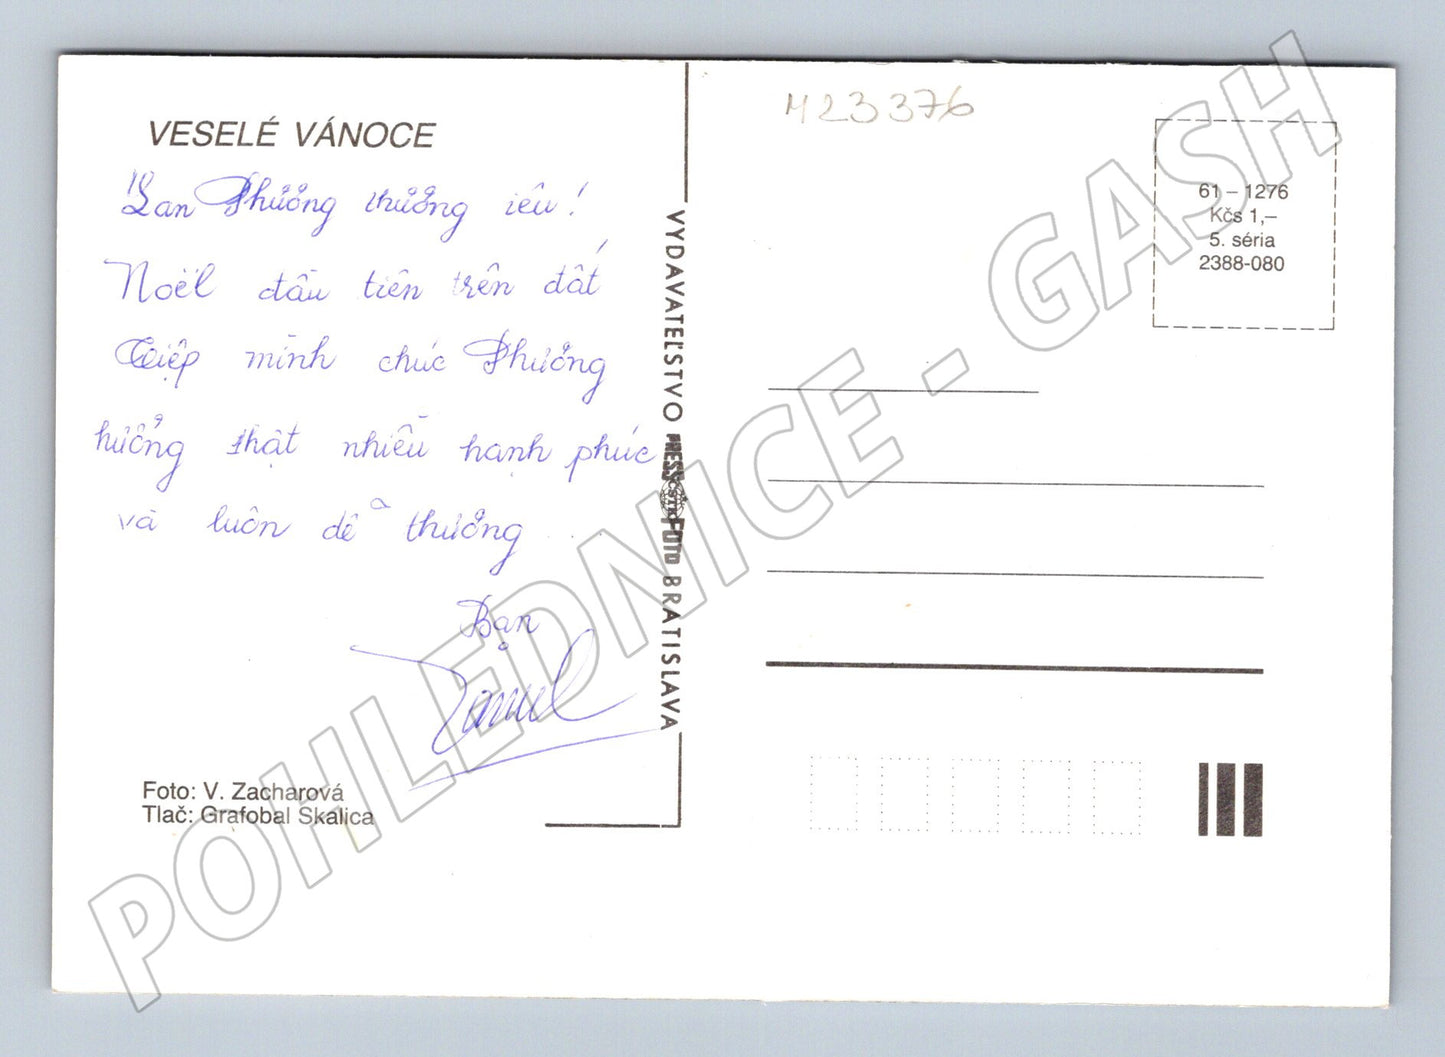 VESELÉ VÁNOCE
Lan Phương thương iêu!
Noël đầu tiên trên đất
Tiệp mình chúc Phương
hưởng thật nhiều hạnh phúc
và luôn dễ thương ...
Bạn
Foto: V. Zacharová
Tlač: Grafobal Skalica
VYDAVATEĽSTVO PRESSFOTO BRATISLAVA
ČSTK
M23376
61 – 1276
Kčs 1,–
5. séria
2388-080
POHLEDNICE - GASH